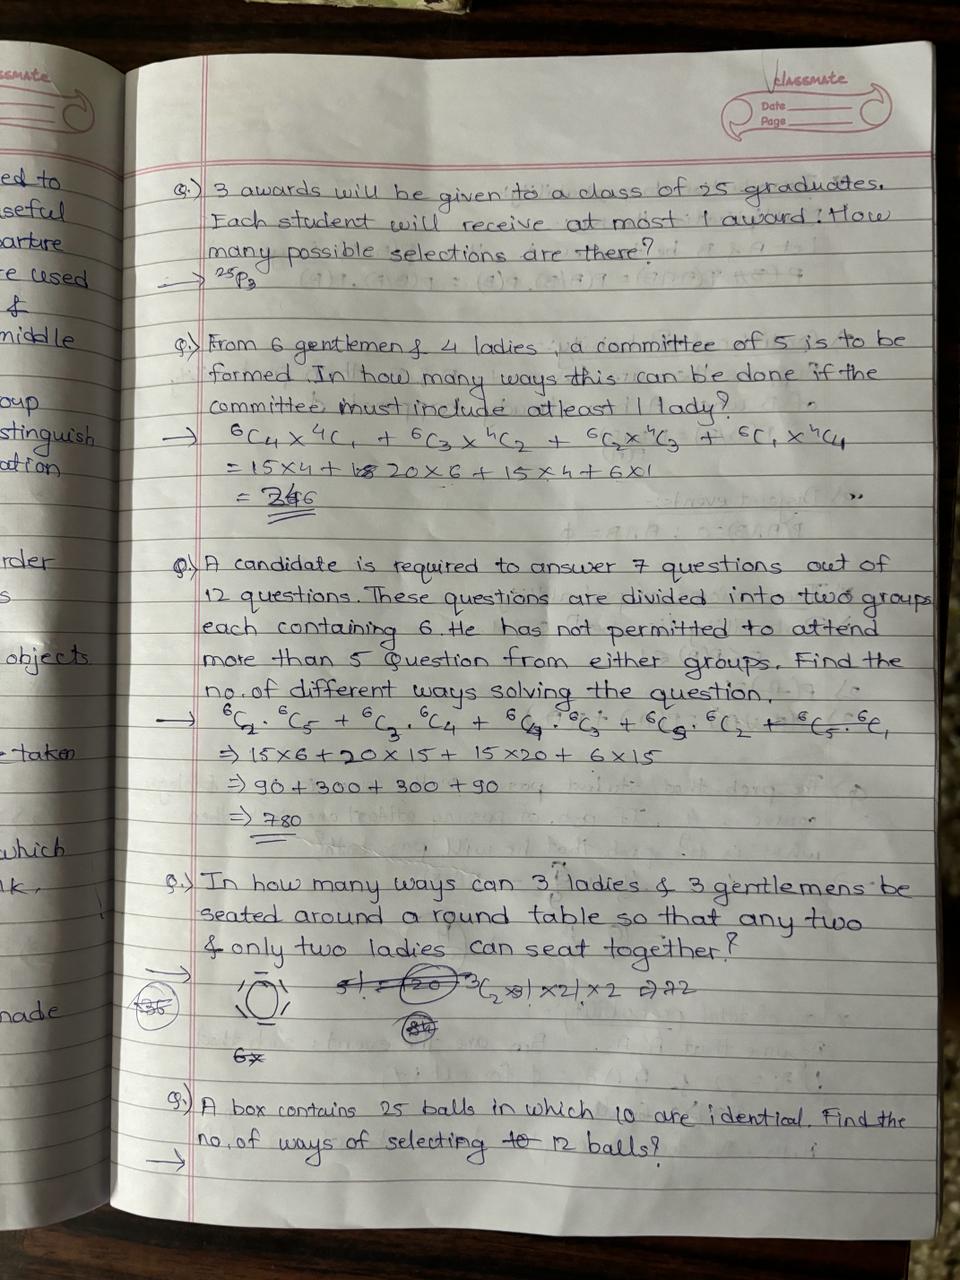 ssmate
classmate
Date
Page
ed to
seful
parture
e used
&
middle
oup
stinguish
ation
rder
s
objects
taken
which
nk,
made
Q.) 3 awards will be given to a class of 25 graduates.
Each student will receive at most 1 award. How
many possible selections are there?
→ ²⁵P₃
Q.) From 6 gentlemen & 4 ladies, a committee of 5 is to be
formed. In how many ways this can be done if the
committee must include atleast 1 lady?
→ ⁶C₄ x ⁴C₁ + ⁶C₃ x ⁴C₂ + ⁶C₂ x ⁴C₃ + ⁶C₁ x ⁴C₄
= 15x4 + 20x6 + 15x4 + 6x1
= 246
Q.) A candidate is required to answer 7 questions out of
12 questions. These questions are divided into two groups
each containing 6. He has not permitted to attend
more than 5 question from either groups. Find the
no. of different ways solving the question.
→ ⁶C₂ . ⁶C₅ + ⁶C₃ . ⁶C₄ + ⁶C₄ . ⁶C₃ + ⁶C₅ . ⁶C₂ + ⁶C₅ . ⁶C₁
⇒ 15x6 + 20x15 + 15x20 + 6x15
⇒ 90 + 300 + 300 + 90
⇒ 780
Q.) In how many ways can 3 ladies & 3 gentlemens be
seated around a round table so that any two
& only two ladies can seat together?
→ 5! = 120 ³C₂ x 3! x 2! x 2 ⇒ 72
36
6x
Q.) A box contains 25 balls in which 10 are identical. Find the
no. of ways of selecting to 12 balls?
→